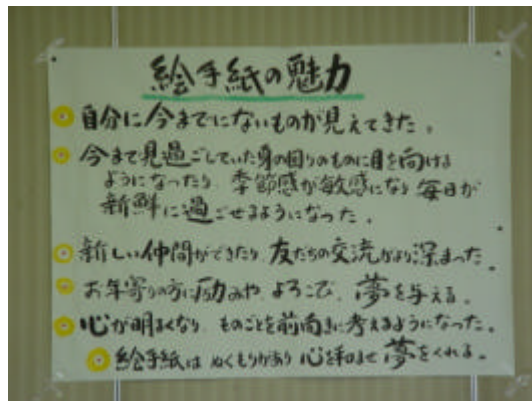 絵手紙の魅力
自分に今までにないものが見えてきた。
今まで見過ごしていた身の回りのものに目を向ける
ようになったり 季節感が敏感になり 毎日が
新鮮に過ごせるようになった。
新しい仲間ができたり 友だちの交流がより深まった。
お年寄りの方に励みや よろこび、夢を与える。
心が明るくなり ものごとを前向きに考えるようになった。
絵手紙は ぬくもりがあり 心を和ませ 夢をくれる。